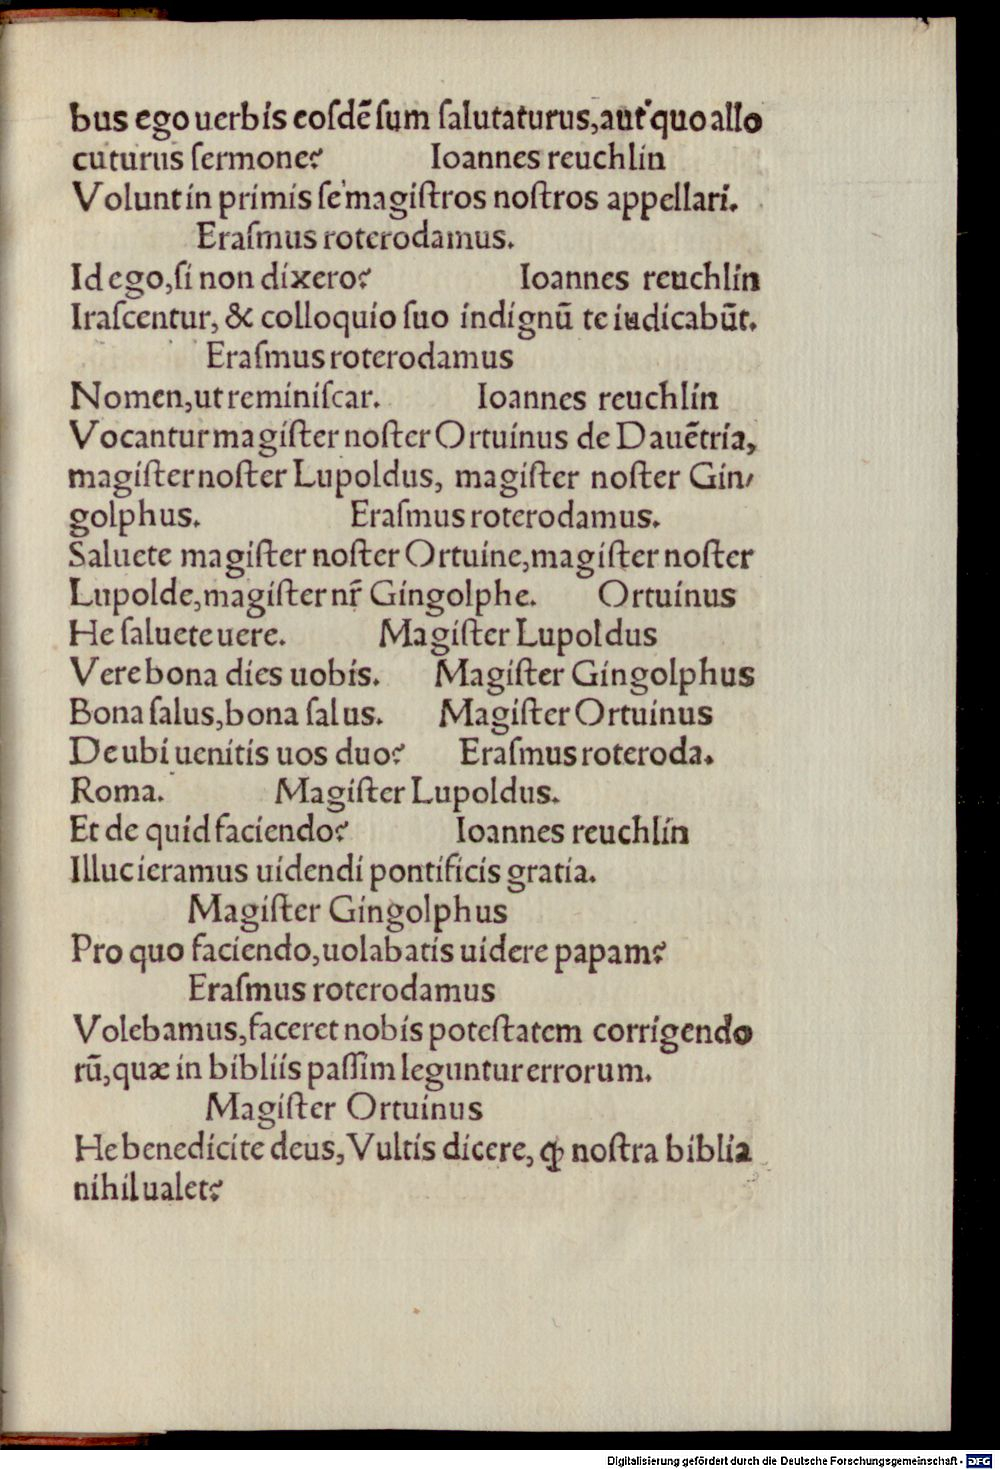 bus ego uerbis eosdē sum salutaturus, aut quo allo
cuturus sermone? Ioannes reuchlin
Volunt in primis se magistros nostros appellari.
Erasmus roterodamus.
Id ego, si non dixero? Ioannes reuchlin
Irascentur, & colloquio suo indignū te iudicabūt.
Erasmus roterodamus
Nomen, ut reminiscar. Ioannes reuchlin
Vocantur magister noster Ortuinus de Dauētria,
magister noster Lupoldus, magister noster Gin/
golphus. Erasmus roterodamus.
Saluete magister noster Ortuine, magister noster
Lupolde, magister nr̄ Gingolphe. Ortuinus
He saluete uere. Magister Lupoldus
Vere bona dies uobis. Magister Gingolphus
Bona salus, bona salus. Magister Ortuinus
De ubi uenitis uos duo? Erasmus roteroda.
Roma. Magister Lupoldus.
Et de quid faciendo? Ioannes reuchlin
Illuc ieramus uidendi pontificis gratia.
Magister Gingolphus
Pro quo faciendo, uolabatis uidere papam?
Erasmus roterodamus
Volebamus, faceret nobis potestatem corrigendo
rū, quæ in bibliis passim leguntur errorum.
Magister Ortuinus
He benedicite deus, Vultis dicere, ꝙ nostra biblia
nihil ualet?
Digitalisierung gefördert durch die Deutsche Forschungsgemeinschaft - DFG